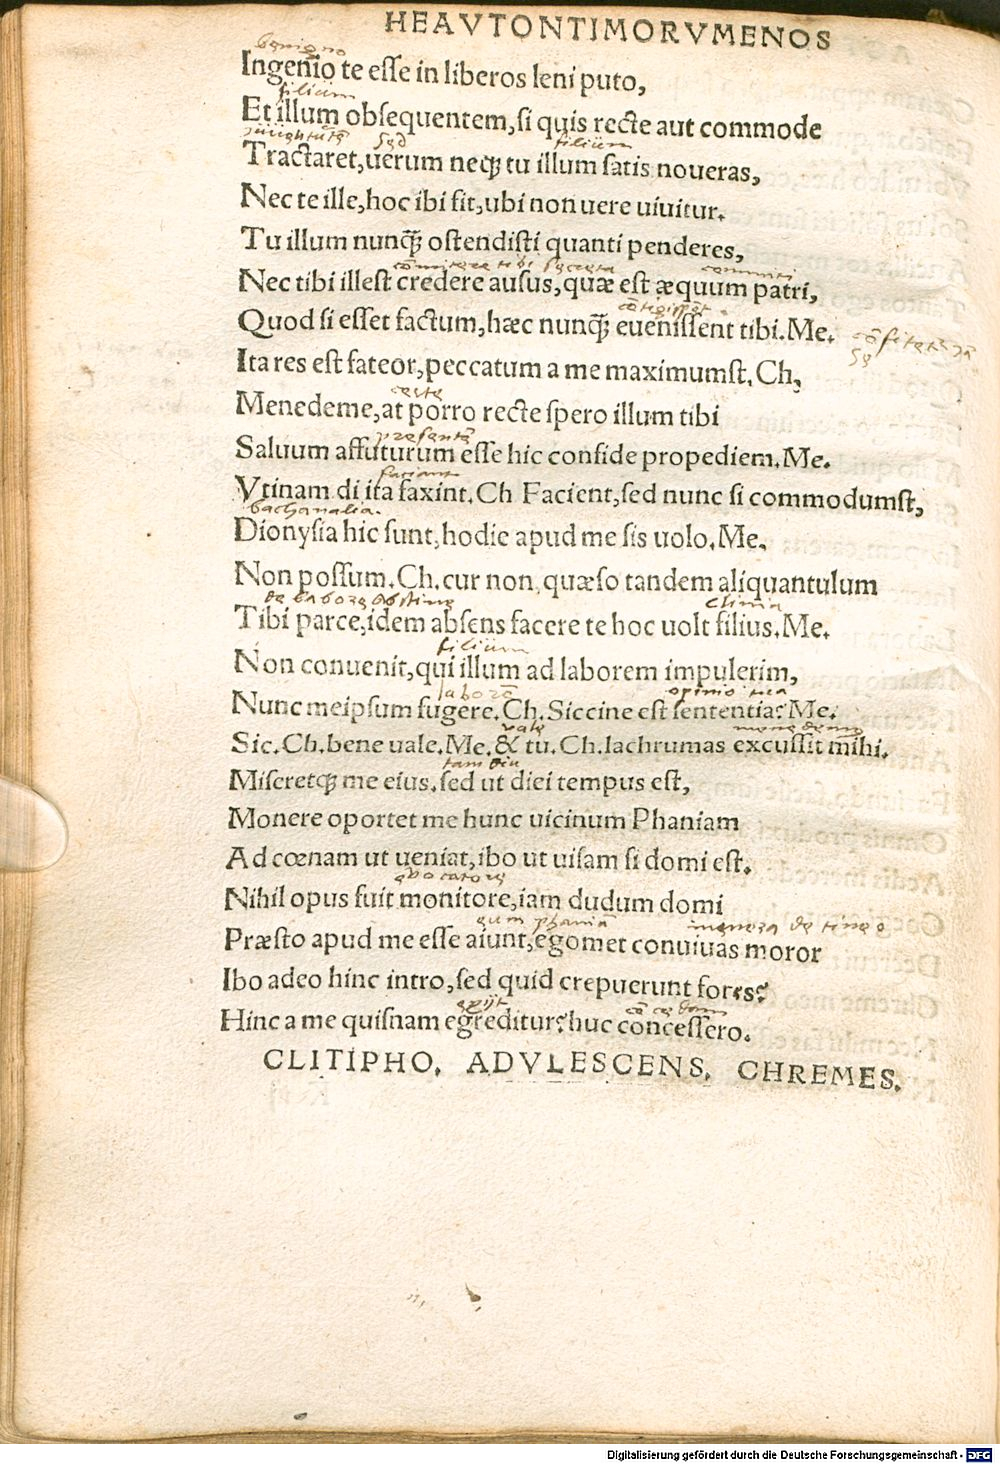 HEAVTONTIMORVMENOS
benigno
Ingenio te esse in liberos leni puto,
filium
Et illum obsequentem, si quis recte aut commode
sed filium
Tractaret, uerum neq; tu illum satis noueras,
Nec te ille, hoc ibi fit, ubi non uere uiuitur.
Tu illum nunq̃; ostendisti quanti penderes,
cōmittere tibi secreta committi
Nec tibi illest credere ausus, quæ est æquum patri,
cōtigisset
Quod si esset factum, hæc nunq̃; euenissent tibi. Me.
Ita res est fateor, peccatum a me maximumst. Ch,
certe
Menedeme, at porro recte spero illum tibi
presentē
Saluum affuturum esse hic confide propediem. Me.
faciant
Vtinam di ita faxint. Ch Facient, sed nunc si commodumst,
bachanalia.
Dionysia hic sunt, hodie apud me sis uolo. Me.
Non possum. Ch. cur non, quæso tandem aliquantulum
de labore abstine Clinia
Tibi parce, idem absens facere te hoc uolt filius. Me.
filium
Non conuenit, qui illum ad laborem impulerim,
laborē opinio tua
Nunc meipsum fugere. Ch. Siccine est sententia? Me.
vale menedemo
Sic. Ch. bene uale. Me. & tu. Ch. lachrumas excussit mihi.
tam diu
Miseretq; me eius, sed ut diei tempus est,
Monere oportet me hunc uicinum Phaniam
Ad cœnam ut ueniat, ibo ut uisam si domi est.
Nihil opus fuit monitore, iam dudum domi
cum phaniā
Præsto apud me esse aiunt, egomet conuiuas moror
Ibo adeo hinc intro, sed quid crepuerunt fores?
exijt
Hinc a me quisnam egreditur? huc concessero.
CLITIPHO. ADVLESCENS. CHREMES.
Digitalisierung gefördert durch die Deutsche Forschungsgemeinschaft - DFG